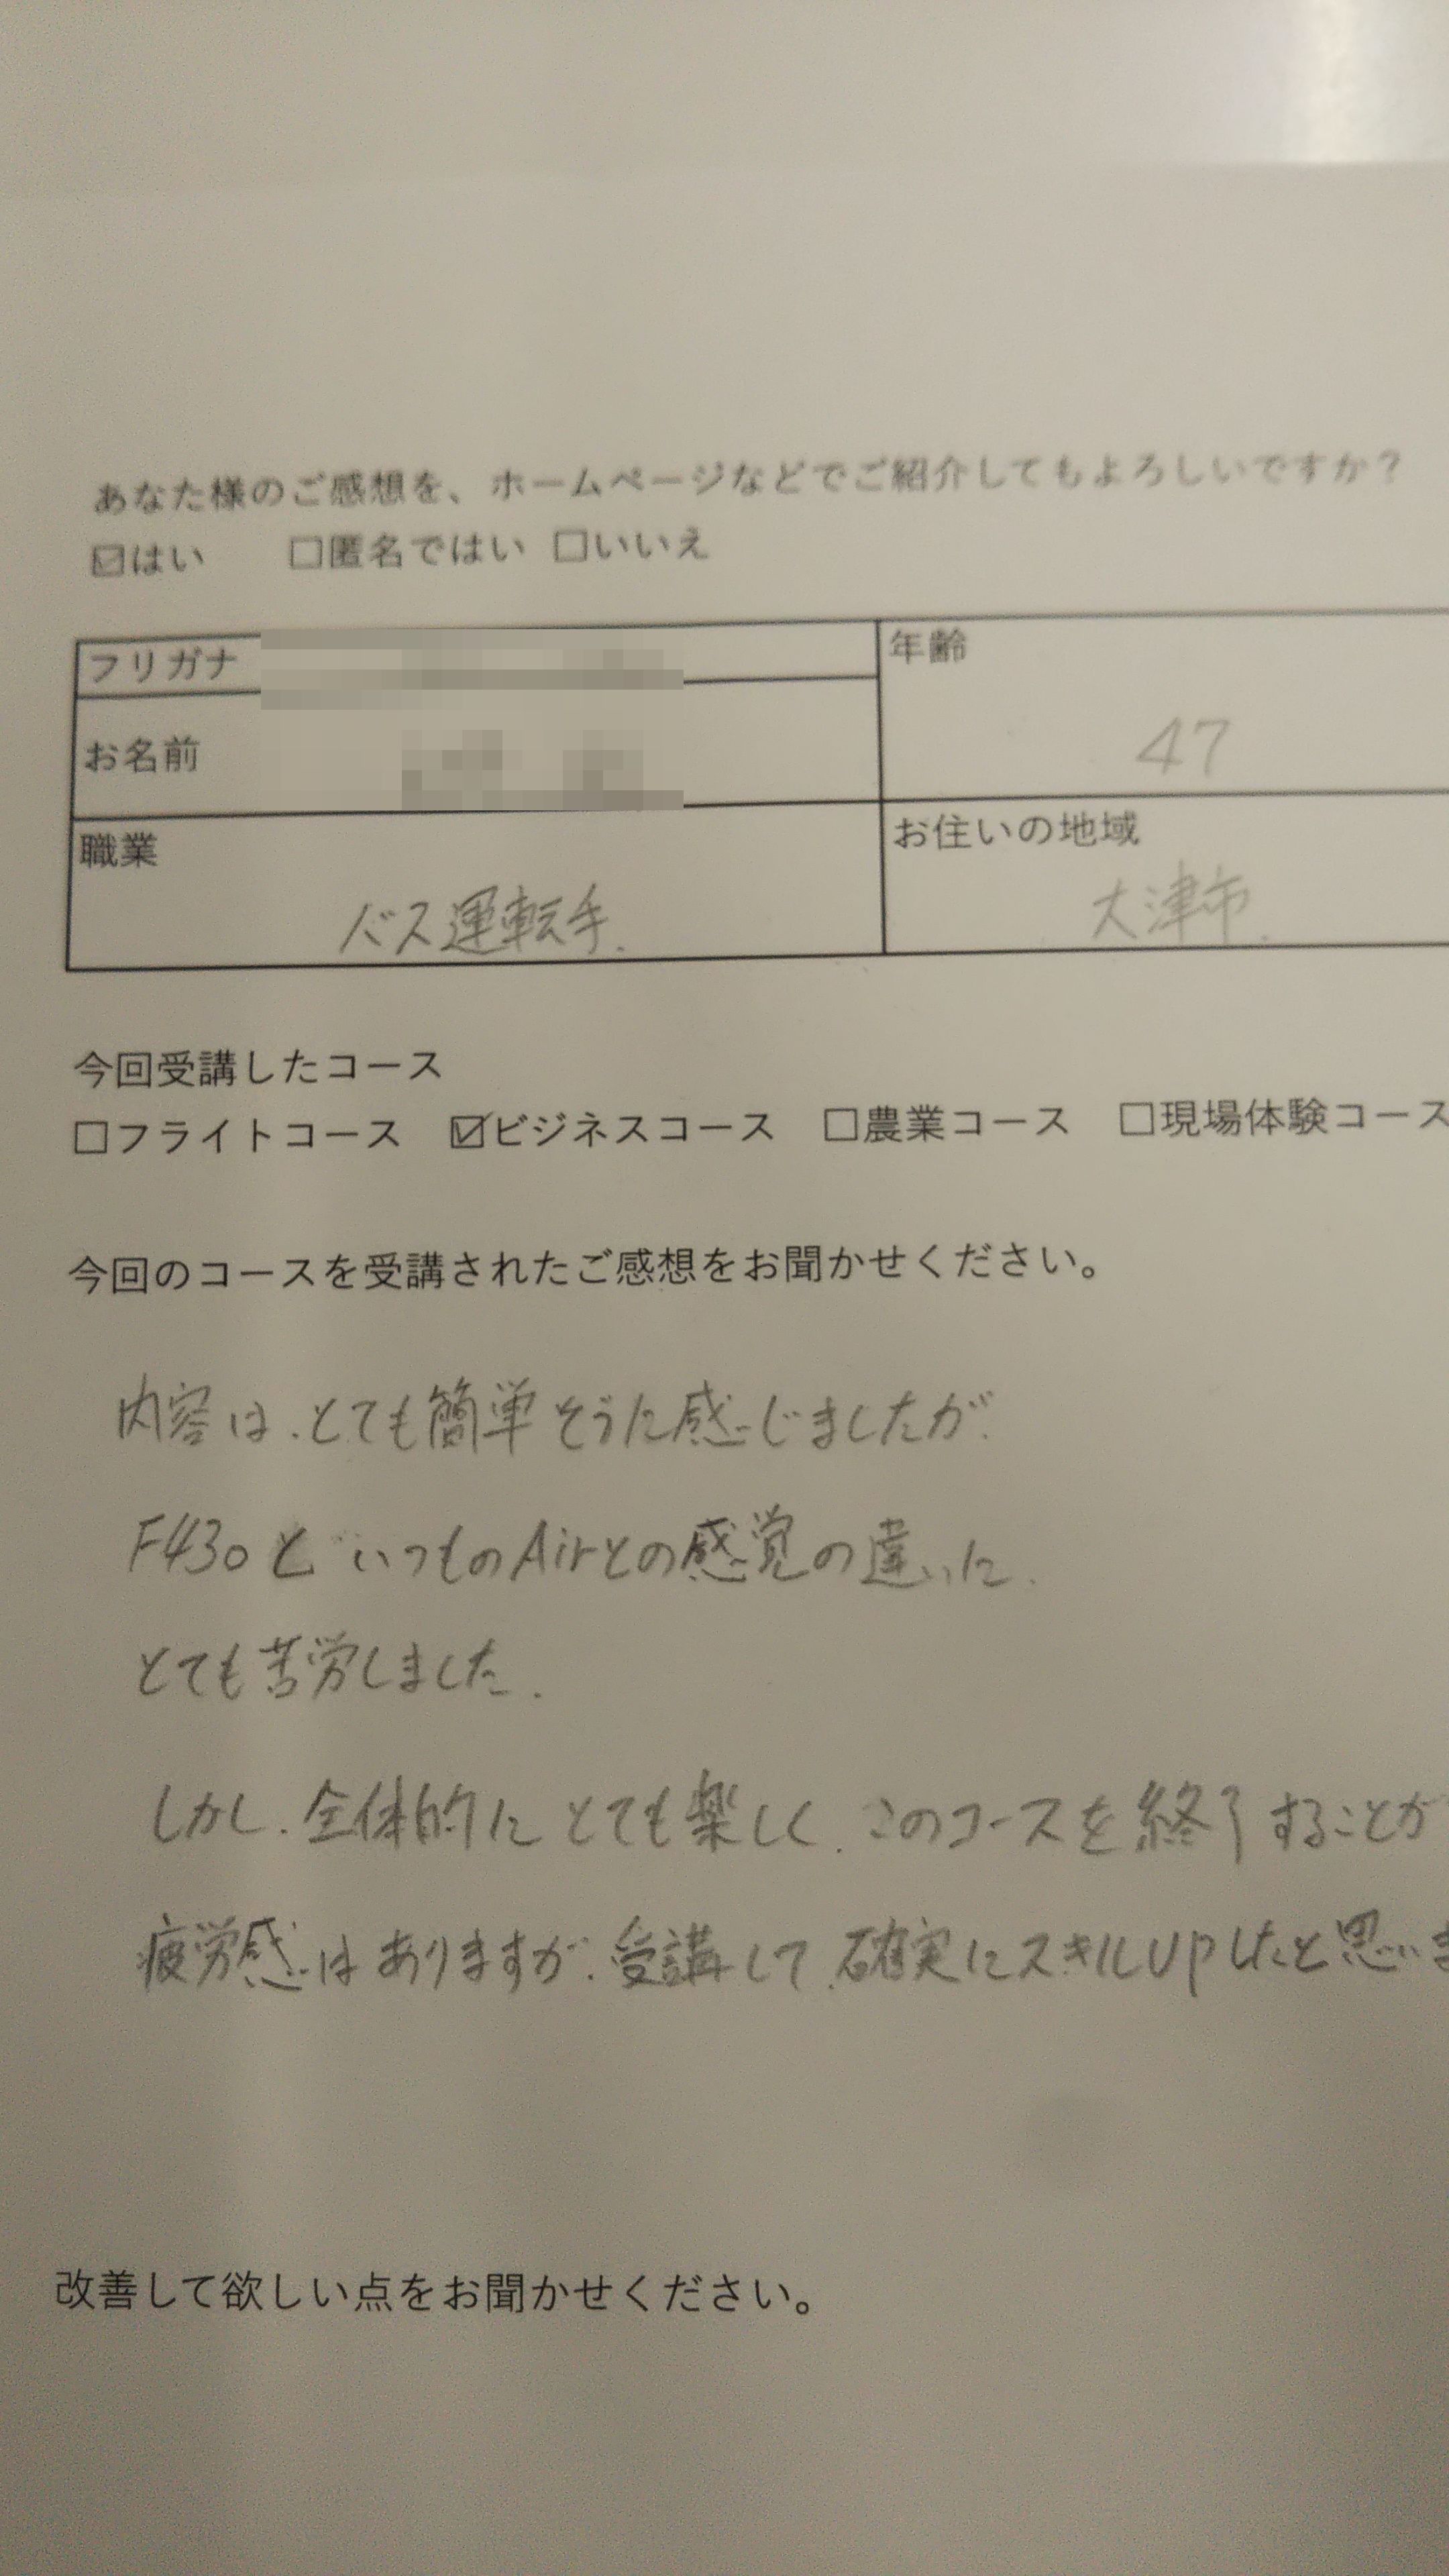 あなた様のご感想を、ホームページなどでご紹介してもよろしいですか？
☑はい □匿名ではい □いいえ
フリガナ
年齢
お名前
47
職業
お住いの地域
バス運転手.
大津市.
今回受講したコース
□フライトコース ☑ビジネスコース □農業コース □現場体験コース
今回のコースを受講されたご感想をお聞かせください。
内容は、とても簡単そうに感じましたが、
F430と いつものAirとの感覚の違いに、
とても苦労しました.
しかし、全体的にとても楽しく、このコースを終了することが
疲労感はありますが、受講して、確実にスキルUPしたと思いま
改善して欲しい点をお聞かせください。